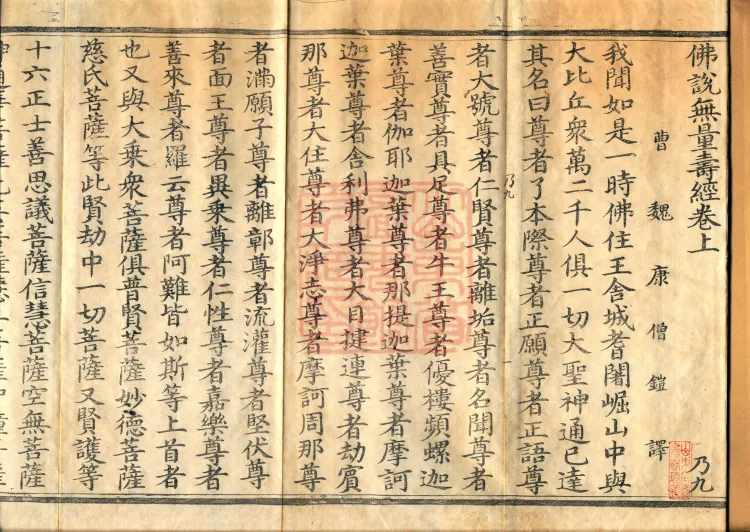 佛說無量壽經卷上
乃九
曹魏康僧鎧譯
我聞如是一時佛住王舍城耆闍崛山中與
大比丘衆萬二千人俱一切大聖神通已達
其名曰尊者了本際尊者正願尊者正語尊
乃九
者大號尊者仁賢尊者離垢尊者名聞尊者
善實尊者具足尊者牛王尊者優樓頻螺迦
葉尊者伽耶迦葉尊者那提迦葉尊者摩訶
迦葉尊者舍利弗尊者大目揵連尊者劫賓
那尊者大住尊者大淨志尊者摩訶周那尊
者滿願子尊者離鄣尊者流灌尊者堅伏尊
者面王尊者異乘尊者仁性尊者嘉樂尊者
善來尊者羅云尊者阿難皆如斯等上首者
也又與大乘衆菩薩俱普賢菩薩妙德菩薩
慈氏菩薩等此賢劫中一切菩薩又賢護等
十六正士善思議菩薩信慧菩薩空無菩薩